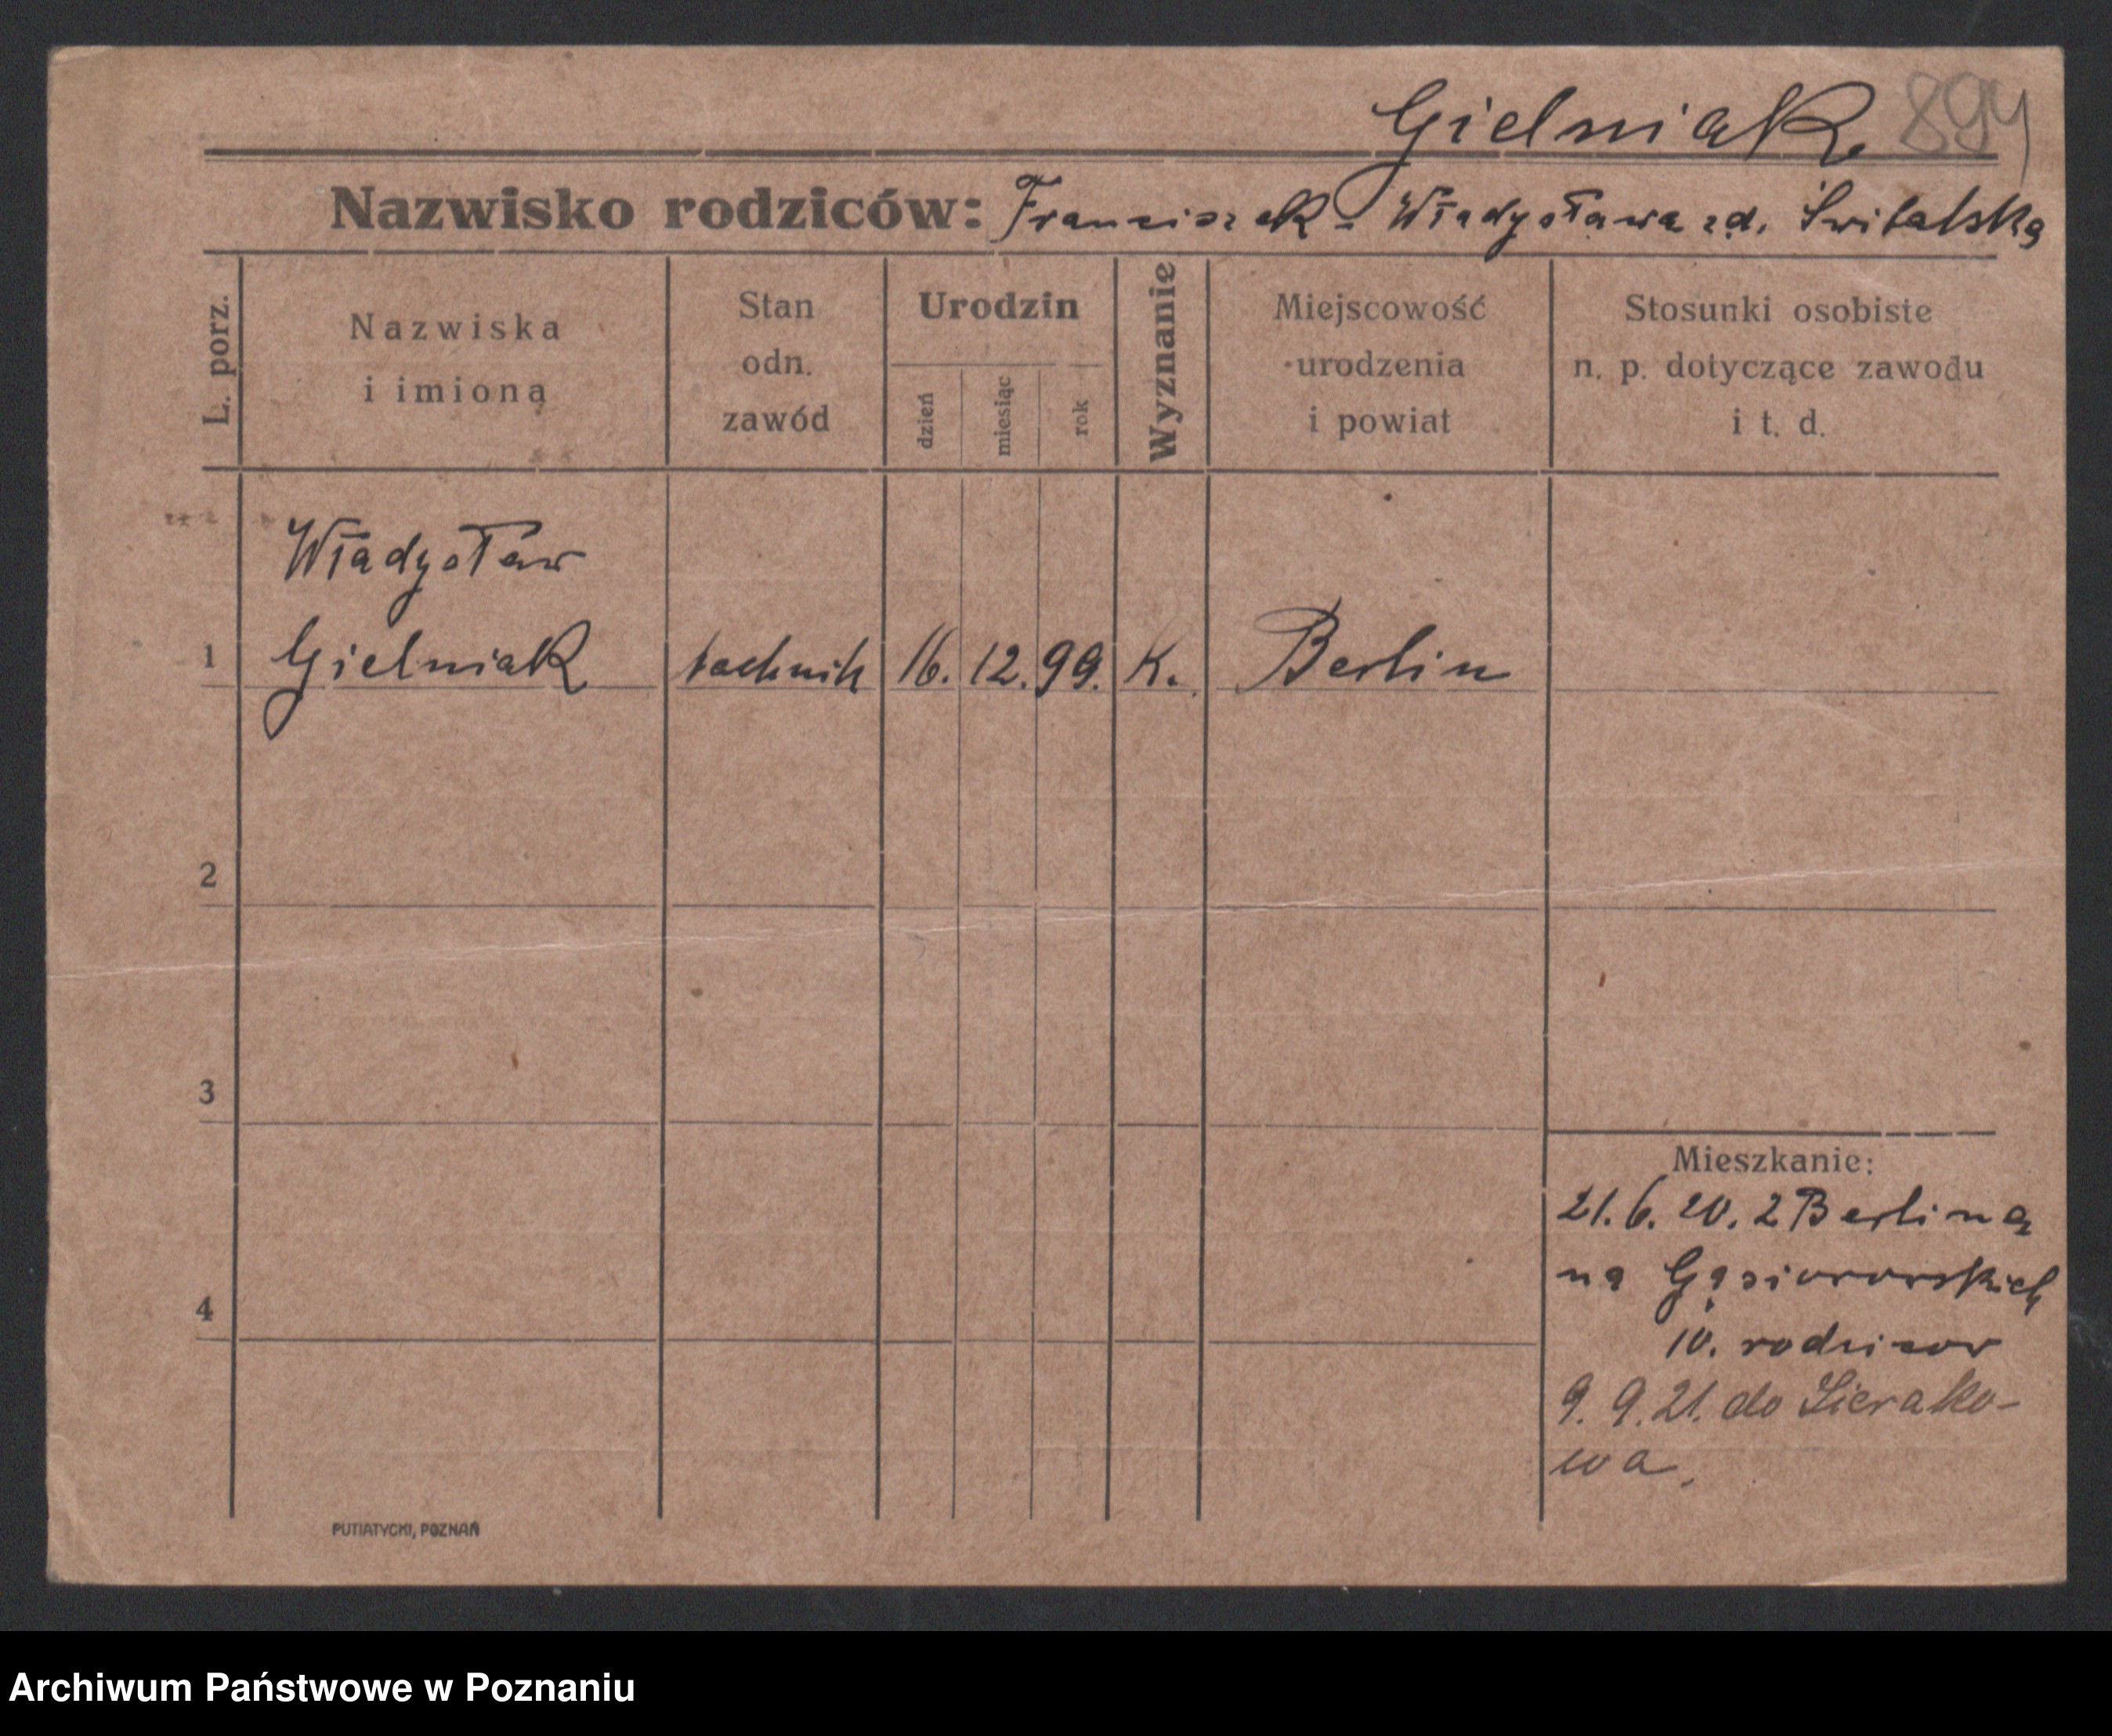 Gielniak 894
Nazwisko rodziców: Franciszek - Władysława zd. Świtalska
L. porz.
Nazwiska
i imiona
Stan
odn.
zawód
Urodzin
dzień
miesiąc
rok
Wyznanie
Miejscowość
urodzenia
i powiat
Stosunki osobiste
n. p. dotyczące zawodu
i t. d.
Władysław
1 Gielniak technik 16. 12. 99. K. Berlin
2
3
4
Mieszkanie:
21. 6. 20. z Berlina
na Gąsiorowskich
10. rodzicow
9. 9. 21. do Sierako-
wa.
PUTIATYCKI, POZNAŃ
Archiwum Państwowe w Poznaniu